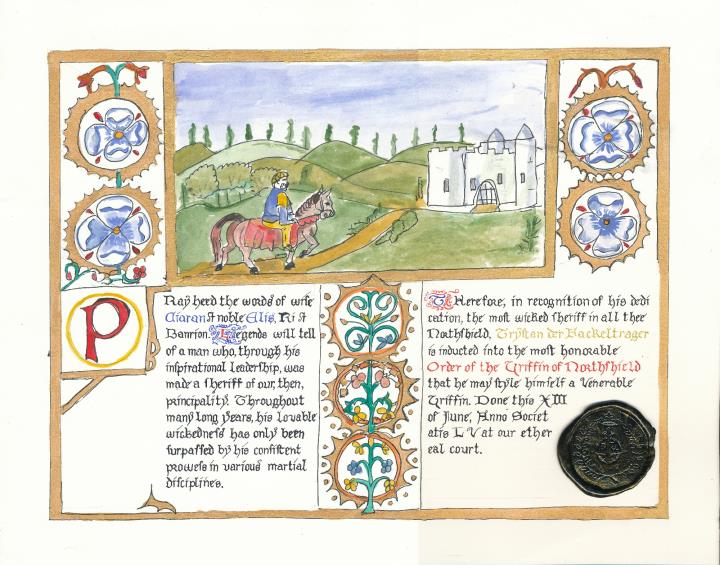 PRay heed the words of wise
Ciaran & noble Elis, Ri &
Banrion. Legends will tell
of a man who, through his
inspirational leadership, was
made a sheriff of our, then,
principality. Throughout
many long years, his lovable
wickedness has only been
surpassed by his consistent
prowess in various martial
disciplines.
Therefore, in recognition of his dedi
cation, the most wicked sheriff in all thee
Northshield, Trystan der Fackeltrager
is inducted into the most honorable
Order of the Griffin of Northshield
that he may style himself a Venerable
Griffin. Done this XIII
of June, Anno Societ
atis LV at our ether
eal court.